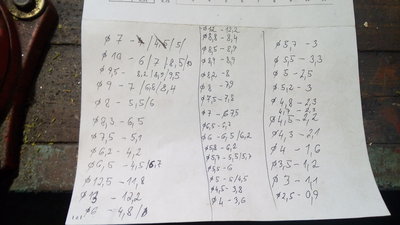 ø 7 - /4,5/5/
ø 10 - 6/7/8,5/10
ø 9,5 - 8,2/8,9/9,5
ø 9 - 7/6,8/8,4
ø 8 - 5,5/6
ø 8,3 - 6,5
ø 7,5 - 5,1
ø 6,2 - 4,2
ø 6,5 - 4,5/5,7
ø 12,5 - 11,8
ø 13 - 12,2
ø 6 - 4,8/
ø 12 - 12,2
ø 8,8 - 8,4
ø 8,5 - 8,9
ø 8,9 - 8,9
ø 8,2 - 8
ø 8 - 7,9
ø 7,5 - 7,3
ø 7 - 6,75
ø 6,5 - 6,3
ø 6 - 6,5/6,2
ø 5,8 - 6,2
ø 5,7 - 5,5/5,7
ø 5,5 - 6
ø 5 - 5/4,5
ø 4,5 - 3,8
ø 4 - 3,6
ø 5,7 - 3
ø 5,5 - 3,3
ø 5 - 2,5
ø 5,2 - 3
ø 4,8 - 2,3
4,7 - 2,3
ø 4,5 - 2,2
ø 4,3 - 2,1
ø 4 - 1,6
ø 3,5 - 1,2
ø 3 - 1,1
ø 2,5 - 0,9